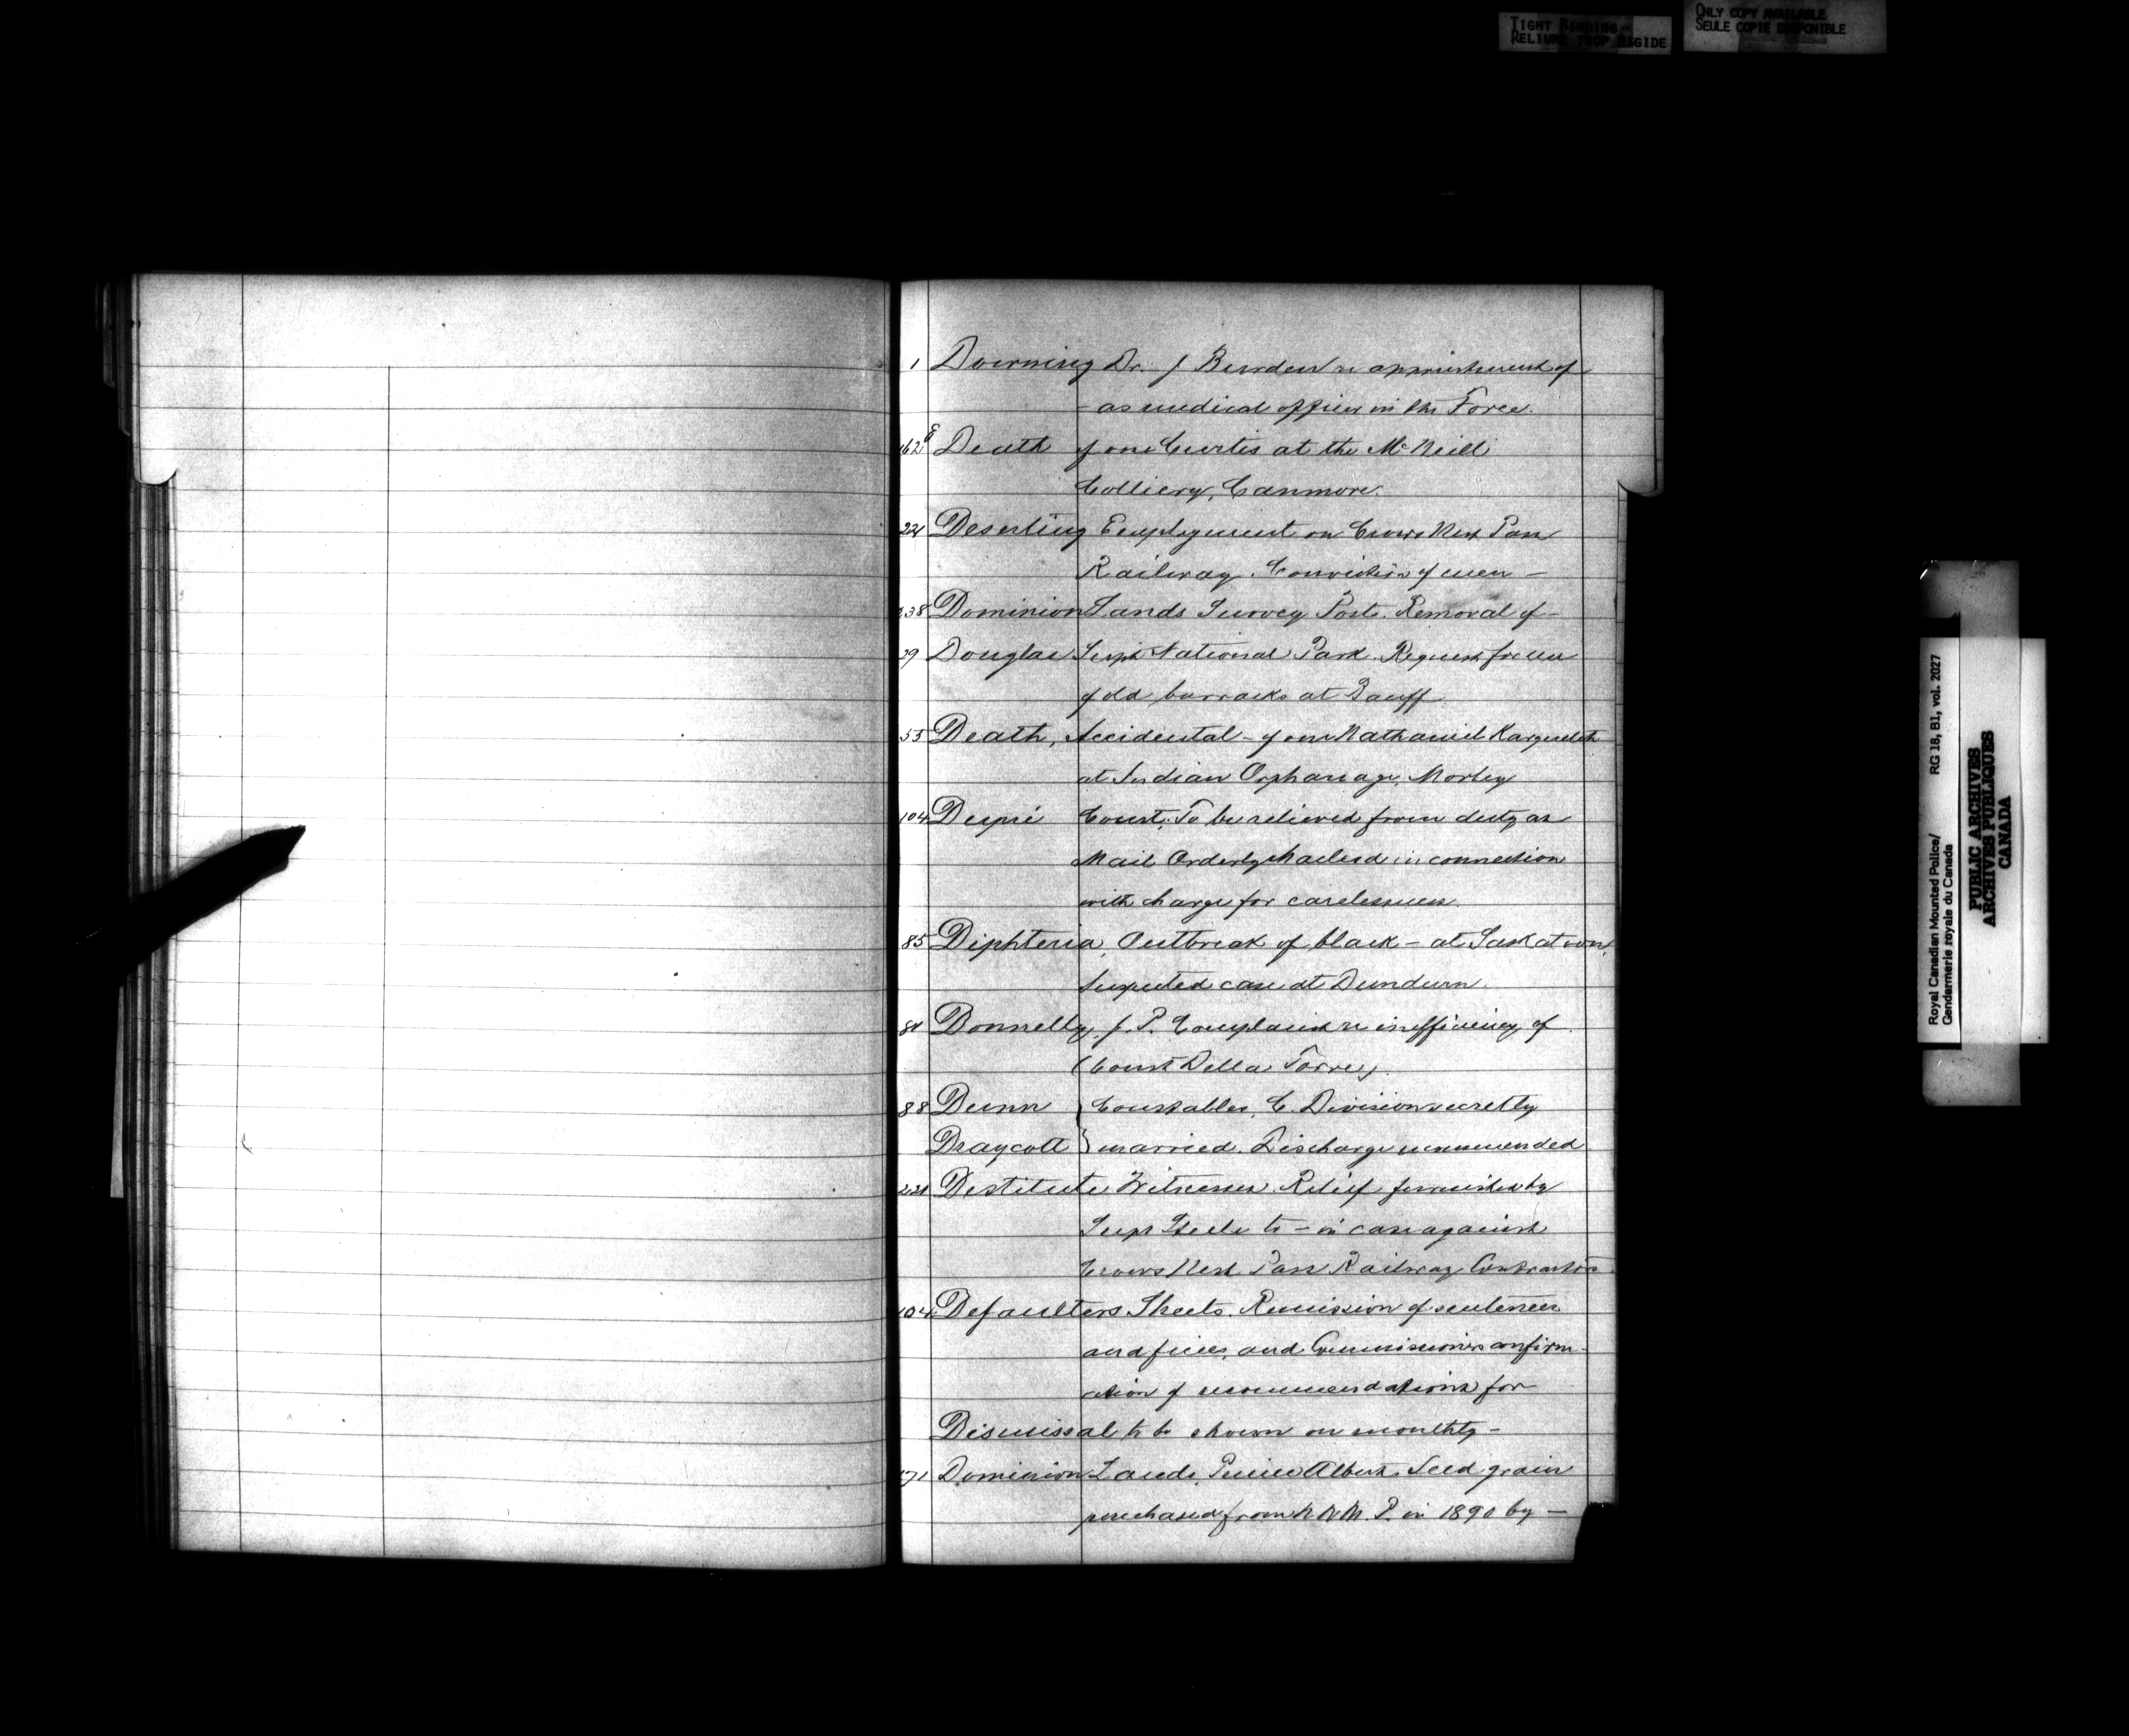 TIGHT BINDING
RELIURE TROP RIGIDE
ONLY COPY AVAILABLE
SEULE COPIE DISPONIBLE
1 Downing Dr. J Burden re appointment of
- as medical officer in the Force.
162 Death of one Curtis at the McNeill
Colliery, Canmore.
221 Deserting Employment on Crows Nest Pass
Railway. Conviction of men -
238 Dominion Lands Survey Posts. Removal of -
29 Douglas Supt National Park. Request for use
of old barracks at Banff
55 Death, Accidental - of one Nathaniel
at Indian Orphanage, Morley
104 Dupré Const. To be relieved from duty as
Mail Orderly in connection
with charge for carelessness.
85 Diphteria, Outbreak of black - at Saskatoon,
Suspected case at Dundurn.
Donnelly, J. P. Complaint re inefficiency of
(Const Della Torre)
88 Dunn } Constables, C. Division secretly
Draycott } married. Discharge recommended
221 Destitute Witnesses. Relief furnished by
Supt Steele to - in case against
Crows Nest Pass Railway Contractors.
104 Defaulters Sheets. Remission of sentences
and fines, and Commissioners confirm-
ation of recommendations for
Dismissal to be shown on monthly -
171 Dominion Lands, Prince Albert. Seed grain
purchased from N.W.M.P. in 1890 by -
Royal Canadian Mounted Police/ RG 18, B1, vol. 2027
Gendarmerie royale du Canada
PUBLIC ARCHIVES
ARCHIVES PUBLIQUES
CANADA